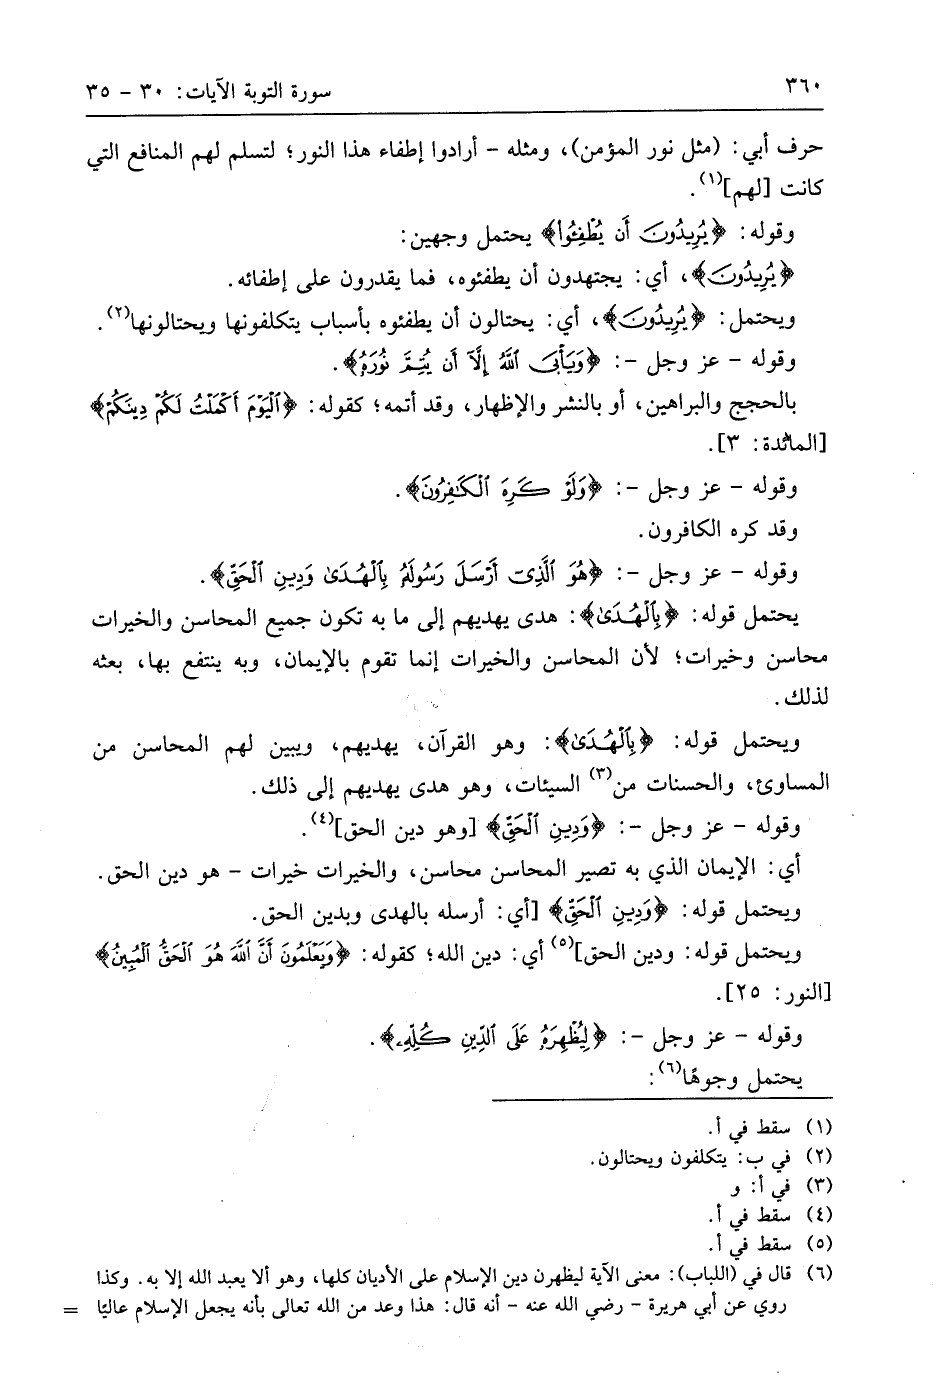 ٣٦٠
سورة التوبة الآيات: ٣٠ - ٣٥
حرف أبي: (مثل نور المؤمن)، ومثله - أرادوا إطفاء هذا النور؛ لتسلم لهم المنافع التي
كانت [لهم](١).
وقوله: ﴿يُرِيدُونَ أَن يُطْفِئُوا﴾ يحتمل وجهين:
﴿يُرِيدُونَ﴾، أي: يجتهدون أن يطفئوه، فما يقدرون على إطفائه.
ويحتمل: ﴿يُرِيدُونَ﴾، أي: يحتالون أن يطفئوه بأسباب يتكلفونها ويحتالونها(٢).
وقوله - عز وجل -: ﴿وَيَأْبَى ٱللَّهُ إِلَّآ أَن يُتِمَّ نُورَهُ﴾.
بالحجج والبراهين، أو بالنشر والإظهار، وقد أتمه؛ كقوله: ﴿ٱلْيَوْمَ أَكْمَلْتُ لَكُمْ دِينَكُمْ﴾
[المائدة: ٣].
وقوله - عز وجل -: ﴿وَلَوْ كَرِهَ ٱلْكَٰفِرُونَ﴾.
وقد كره الكافرون.
وقوله - عز وجل -: ﴿هُوَ ٱلَّذِىٓ أَرْسَلَ رَسُولَهُ بِٱلْهُدَىٰ وَدِينِ ٱلْحَقِّ﴾.
يحتمل قوله: ﴿بِٱلْهُدَىٰ﴾: هدى يهديهم إلى ما به تكون جميع المحاسن والخيرات
محاسن وخيرات؛ لأن المحاسن والخيرات إنما تقوم بالإيمان، وبه ينتفع بها، بعثه
لذلك.
ويحتمل قوله: ﴿بِٱلْهُدَىٰ﴾: وهو القرآن، يهديهم، ويبين لهم المحاسن من
المساوئ، والحسنات من(٣) السيئات، وهو هدى يهديهم إلى ذلك.
وقوله - عز وجل -: ﴿وَدِينِ ٱلْحَقِّ﴾ [وهو دين الحق](٤).
أي: الإيمان الذي به تصير المحاسن محاسن، والخيرات خيرات - هو دين الحق.
ويحتمل قوله: ﴿وَدِينِ ٱلْحَقِّ﴾ [أي: أرسله بالهدى وبدين الحق.
ويحتمل قوله: ودين الحق](٥) أي: دين الله؛ كقوله: ﴿وَيَعْلَمُونَ أَنَّ ٱللَّهَ هُوَ ٱلْحَقُّ ٱلْمُبِينُ﴾
[النور: ٢٥].
وقوله - عز وجل -: ﴿لِيُظْهِرَهُ عَلَى ٱلدِّينِ كُلِّهِۦ﴾.
يحتمل وجوهًا(٦):
(١) سقط في أ.
(٢) في ب: يتكلفون ويحتالون.
(٣) في أ: و
(٤) سقط في أ.
(٥) سقط في أ.
(٦) قال في (اللباب): معنى الآية ليظهرن دين الإسلام على الأديان كلها، وهو ألا يعبد الله إلا به. وكذا
روي عن أبي هريرة - رضي الله عنه - أنه قال: هذا وعد من الله تعالى بأنه يجعل الإسلام عاليًا =